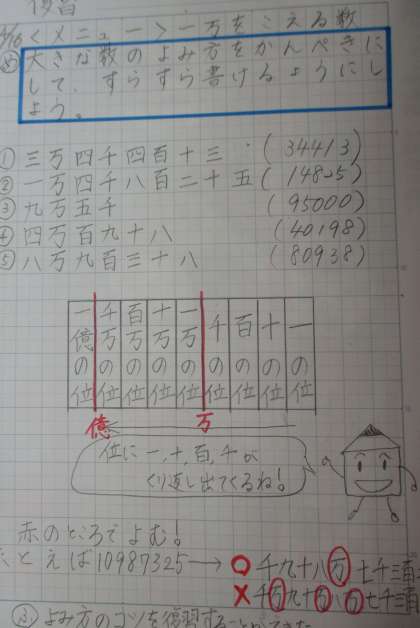 復習
<メニュー>一万をこえる数
め 大きな数のよみ方をかんぺきに
して、すらすら書けるようにし
よう。
① 三万四千四百十三 (34413)
② 一万四千八百二十五 (14825)
③ 九万五千 (95000)
④ 四万百九十八 (40198)
⑤ 八万九百三十八 (80938)
一億の位 千万の位 百万の位 十万の位 一万の位 千の位 百の位 十の位 一の位
億 万
位に一、十、百、千が
くり返し出てくるね!
赤のところでよむ!
たとえば10987325→ ○ 千九十八万七千三百
× 千万九十万八万七千三百
ふ よみ方のコツを復習することができた